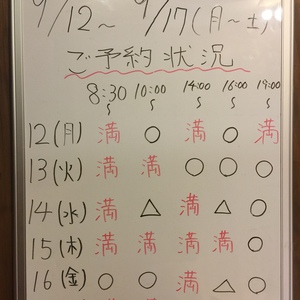 9/12～9/17(月～土)
ご予約状況
8:30～ 10:00～ 14:00～ 16:00～ 19:00～
12(月) 満 ○ 満 ○ 満
13(火) 満 満 ○ ○ ○
14(水) 満 △ 満 △ ○
15(木) 満 満 満 満 ○
16(金) ○ ○ 満 △ ○